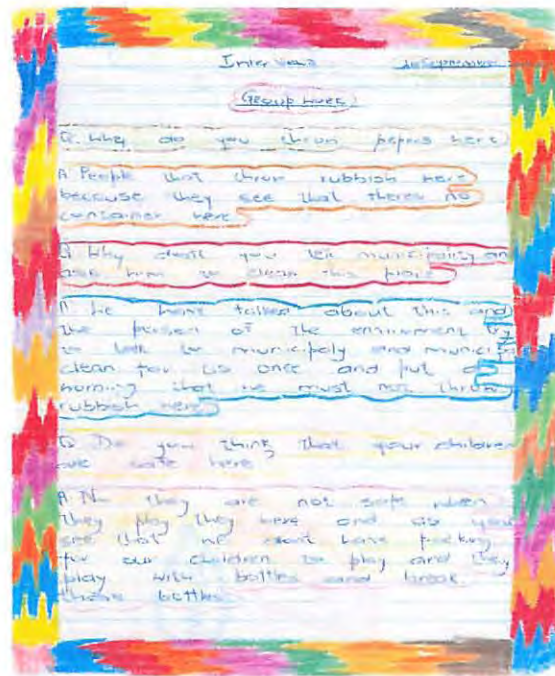 Interview September
Group work
Q. Why do you throw papers here
A. People that throw rubbish here
because they see that theres no
container here
Q Why don't you tell municipality an
ask him to clean this place
A We have talked about this and
the person of the environment try
to talk to municipaly and municipa
clean for us once and put a
worning that we must not throw
rubbish here
Q Do you think that your children
are safe here?
A. No they are not safe when
they play they here and as you
see that we don't have packing
for our children to play and they
play with bottles and break
those bottles.